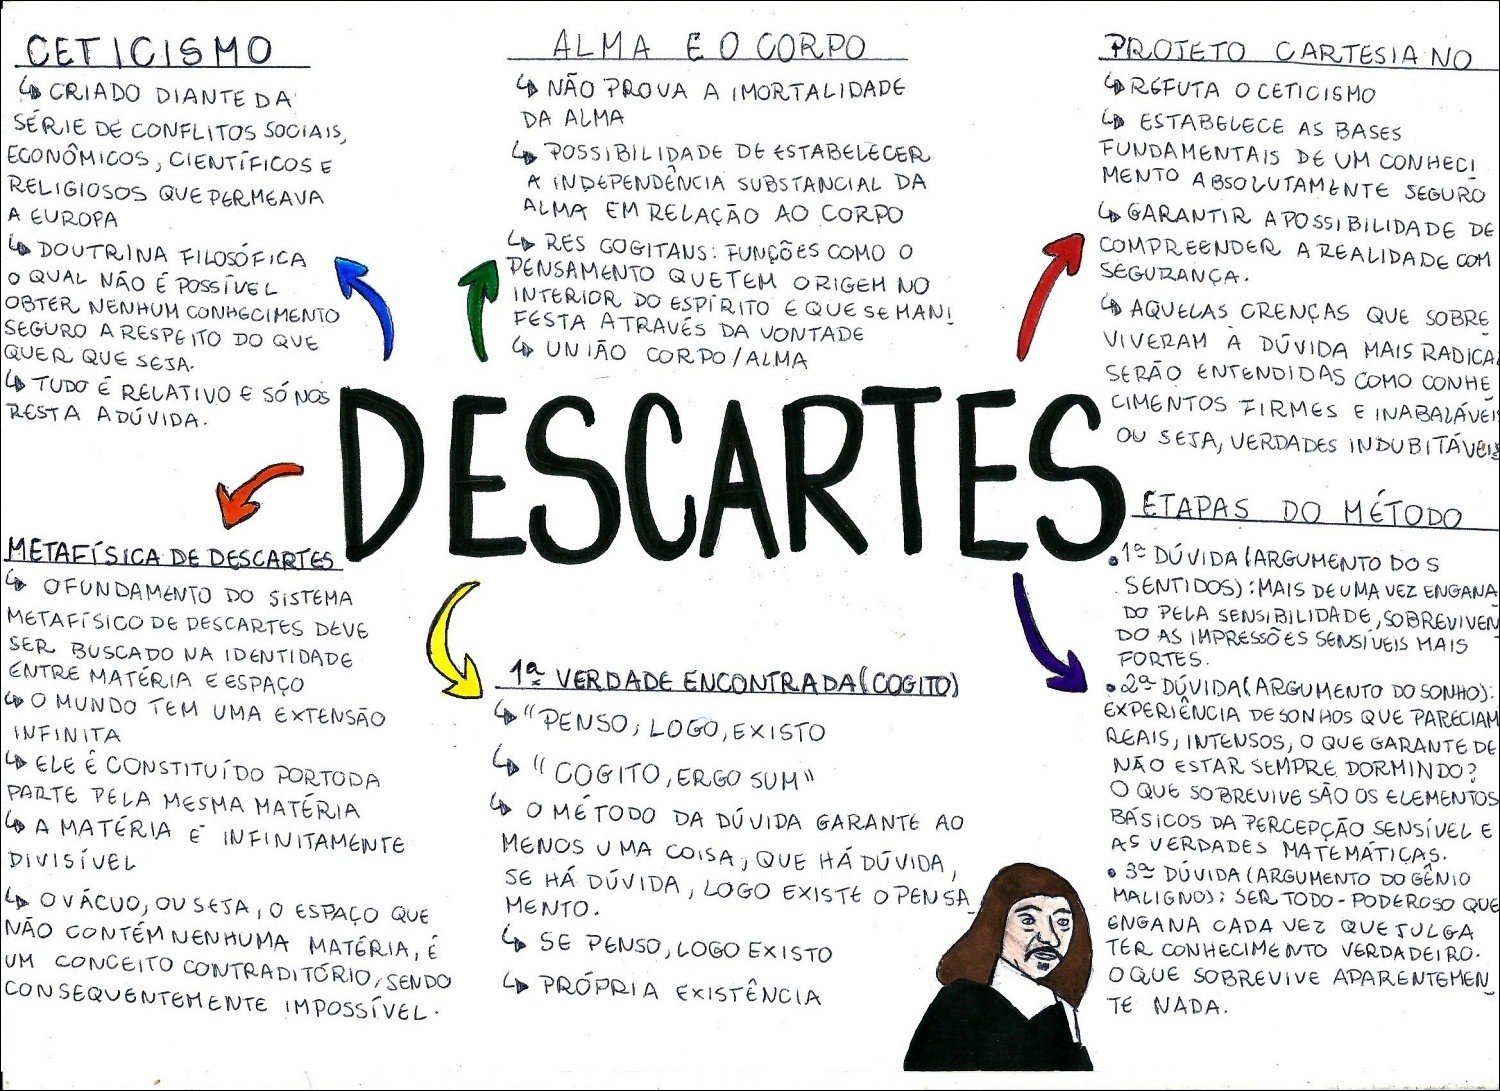 CETICISMO
CRIADO DIANTE DA
SÉRIE DE CONFLITOS SOCIAIS,
ECONÔMICOS, CIENTÍFICOS E
RELIGIOSOS QUE PERMEAVA
A EUROPA
DOUTRINA FILOSÓFICA
O QUAL NÃO É POSSÍVEL
OBTER NENHUM CONHECIMENTO
SEGURO A RESPEITO DO QUE
QUER QUE SEJA.
TUDO É RELATIVO E SÓ NOS
RESTA A DÚVIDA.
ALMA E O CORPO
NÃO PROVA A IMORTALIDADE
DA ALMA
POSSIBILIDADE DE ESTABELECER
A INDEPENDÊNCIA SUBSTANCIAL DA
ALMA EM RELAÇÃO AO CORPO
RES COGITANS: FUNÇÕES COMO O
PENSAMENTO QUE TEM ORIGEM NO
INTERIOR DO ESPÍRITO E QUE SE MANI
FESTA ATRAVÉS DA VONTADE
UNIÃO CORPO/ALMA
PROJETO CARTESIANO
REFUTA O CETICISMO
ESTABELECE AS BASES
FUNDAMENTAIS DE UM CONHECI
MENTO ABSOLUTAMENTE SEGURO
GARANTIR A POSSIBILIDADE DE
COMPREENDER A REALIDADE COM
SEGURANÇA.
AQUELAS CRENÇAS QUE SOBRE
VIVERAM À DÚVIDA MAIS RADICAL
SERÃO ENTENDIDAS COMO CONHE
CIMENTOS FIRMES E INABALÁVEIS
OU SEJA, VERDADES INDUBITÁVEIS
DESCARTES
METAFÍSICA DE DESCARTES
O FUNDAMENTO DO SISTEMA
METAFÍSICO DE DESCARTES DEVE
SER BUSCADO NA IDENTIDADE
ENTRE MATÉRIA E ESPAÇO
O MUNDO TEM UMA EXTENSÃO
INFINITA
ELE É CONSTITUÍDO POR TODA
PARTE PELA MESMA MATÉRIA
A MATÉRIA É INFINITAMENTE
DIVISÍVEL
O VÁCUO, OU SEJA, O ESPAÇO QUE
NÃO CONTÉM NENHUMA MATÉRIA, É
UM CONCEITO CONTRADITÓRIO, SENDO
CONSEQUENTEMENTE IMPOSSÍVEL.
1ª VERDADE ENCONTRADA (COGITO)
"PENSO, LOGO, EXISTO
"COGITO, ERGO SUM"
O MÉTODO DA DÚVIDA GARANTE AO
MENOS UMA COISA, QUE HÁ DÚVIDA,
SE HÁ DÚVIDA, LOGO EXISTE O PENSA_
MENTO.
SE PENSO, LOGO EXISTO
PRÓPRIA EXISTÊNCIA
ETAPAS DO MÉTODO
• 1ª DÚVIDA (ARGUMENTO DOS
SENTIDOS): MAIS DE UMA VEZ ENGANA
DO PELA SENSIBILIDADE, SOBREVIVEN
DO AS IMPRESSÕES SENSÍVEIS MAIS
FORTES.
• 2ª DÚVIDA (ARGUMENTO DO SONHO):
EXPERIÊNCIA DE SONHOS QUE PARECIAM
REAIS, INTENSOS, O QUE GARANTE DE
NÃO ESTAR SEMPRE DORMINDO?
O QUE SOBREVIVE SÃO OS ELEMENTOS
BÁSICOS DA PERCEPÇÃO SENSÍVEL E
AS VERDADES MATEMÁTICAS.
• 3ª DÚVIDA (ARGUMENTO DO GÊNIO
MALIGNO): SER TODO-PODEROSO QUE
ENGANA CADA VEZ QUE JULGA
TER CONHECIMENTO VERDADEIRO.
O QUE SOBREVIVE APARENTEMEN_
TE NADA.